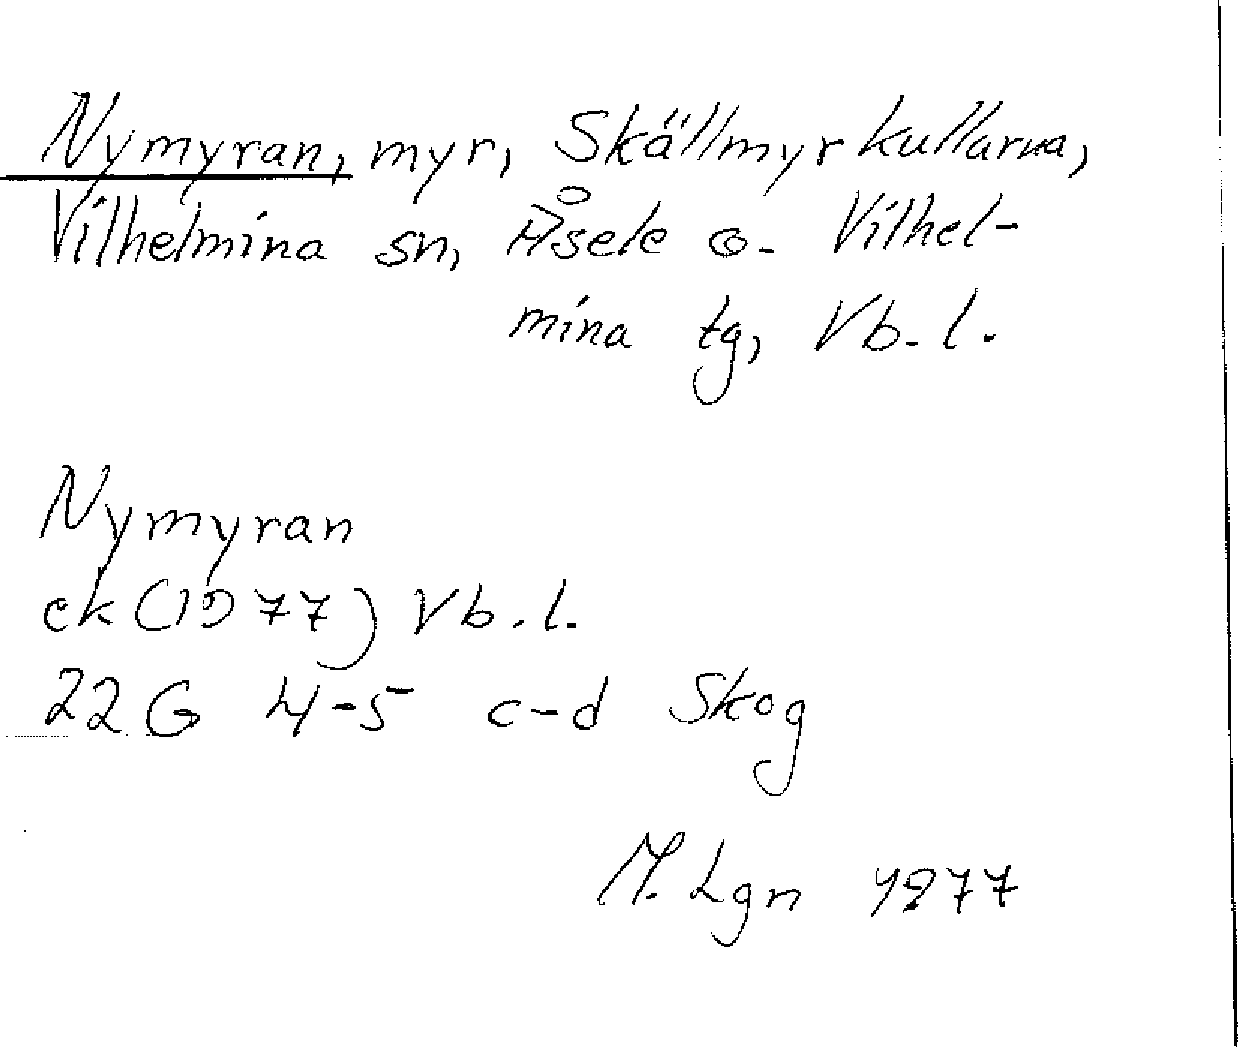 Nymyran, myr, Skällmyrkullarna,
Vilhelmina sn, Åsele o. Vilhel-
mina tg, Vb. l.
Nymyran
ek (1977) Vb. l.
22G 4-5 c-d Skog
M. Lgn 1977